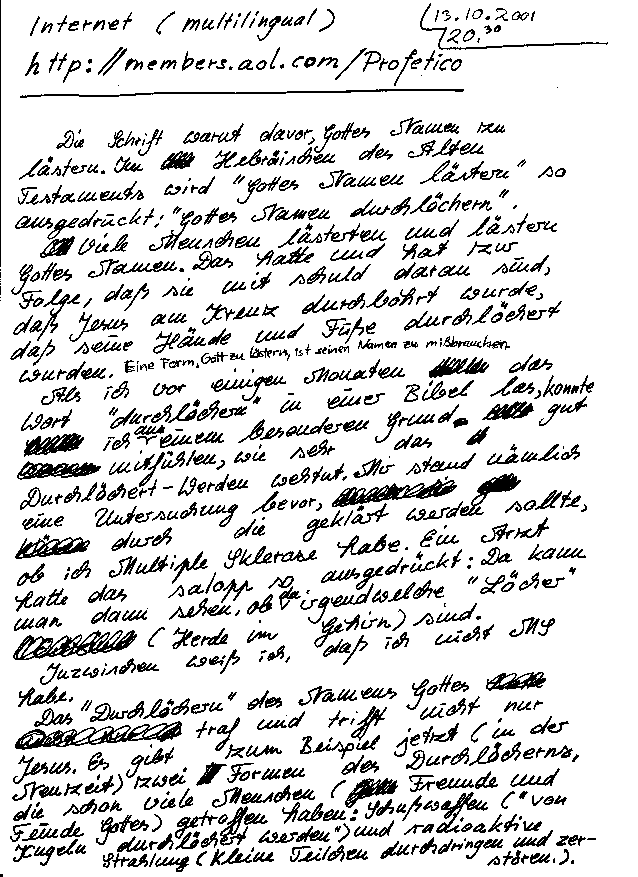 Internet (multilingual)
13.10.2001
20.30
http://members.aol.com/Profetico
Die Schrift warnt davor, Gottes Namen zu
lästern. Im Hebräischen des Alten
Testaments wird "Gottes Namen lästern" so
ausgedrückt: "Gottes Namen durchlöchern".
Viele Menschen lästerten und lästern
Gottes Namen. Das hatte und hat zur
Folge, daß sie mit schuld daran sind,
daß Jesus am Kreuz durchbohrt wurde,
daß seine Hände und Füße durchlöchert
wurden. Eine Form, Gott zu lästern, ist seinen Namen zu mißbrauchen.
Als ich vor einigen Monaten das
Wort "durchlöchern" in einer Bibel las, konnte
ich aus einem besonderen Grund gut
mitfühlen, wie sehr das
Durchlöchert-Werden wehtut. Mir stand nämlich
eine Untersuchung bevor,
durch die geklärt werden sollte,
ob ich Multiple Sklerose habe. Ein Arzt
hatte das salopp so ausgedrückt: Da kann
man dann sehen, ob da irgendwelche "Löcher"
(Herde im Gehirn) sind.
Inzwischen weiß ich, daß ich nicht MS
habe.
Das "Durchlöchern" des Namens Gottes
traf und trifft nicht nur
Jesus. Es gibt zum Beispiel jetzt (in der
Neuzeit) zwei Formen des Durchlöcherns,
die schon viele Menschen (Freunde und
Feinde Gottes) getroffen haben: Schußwaffen ("von
Kugeln durchlöchert werden") und radioaktive
Strahlung (Kleine Teilchen durchdringen und zer-
stören.).